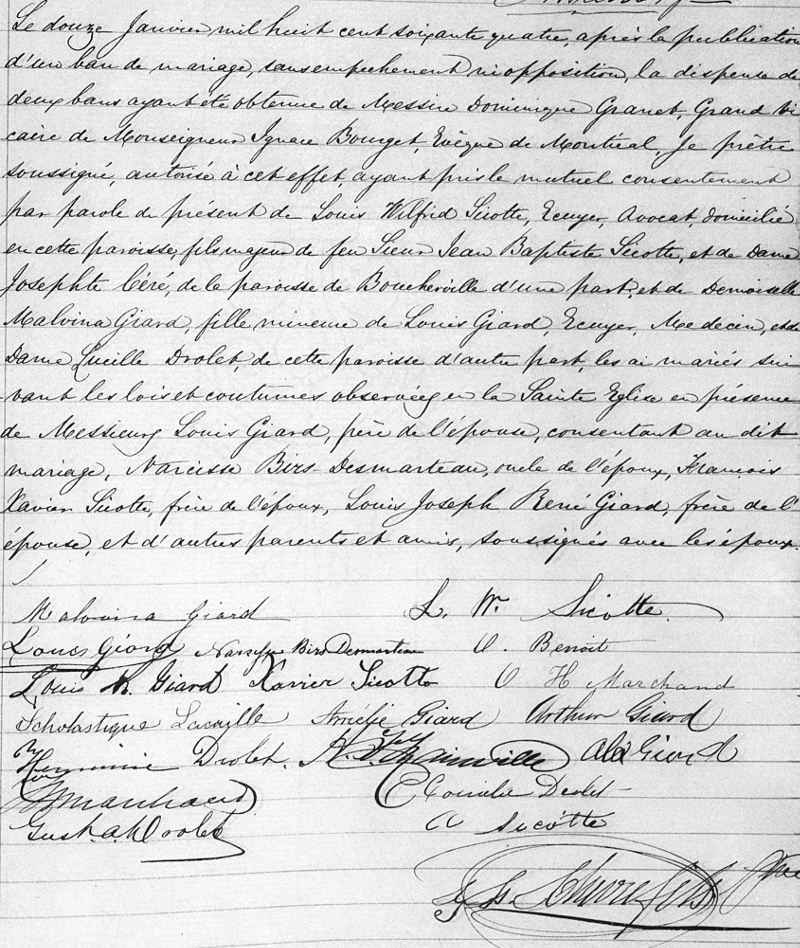 Le douze Janvier mil huit cent soixante quatre, après la publication
d'un ban de mariage, sans empechement ni opposition, la dispense de
deux bans ayant été obtenue de Messire Dominique Granet, Grand Vi
caire de Monseigneur Ignace Bourget, Evèque de Montréal, Je prêtre
soussigné, autorisé à cet effet, ayant pris le mutuel consentement
par parole de présent de Louis Wilfrid Sicotte, Ecuyer, Avocat, domicilié
en cette paroisse, fils majeur de feu Sieur Jean Baptiste Sicotte, et de Dame
Josephte Céré, de la paroisse de Boucherville d'une part, et de Demoiselle
Malvina Giard, fille mineure de Louis Giard, Ecuyer, Medecin, et de
Dame Lucille Drolet, de cette paroisse d'autre part, les ai mariés sui
vant les lois et coutumes observées en la Sainte Eglise en présence
de Messieurs Louis Giard, père de l'épouse, consentant au dit
mariage, Narcisse Birs-Desmarteau, oncle de l'époux, François
Xavier Sicotte, frère de l'époux, Louis Joseph René Giard, frère de l'
épouse, et d'autres parents et amis, soussignés avec les époux.
Malvina Giard L. W. Sicotte
Louis Giard Narcisse Birs Desmarteau O. Benoit
Louis R. Giard Xavier Sicotte O H Marchand
Scholastique Lacaille Amélie Giard Arthur Giard
Herminie Drolet. Mainville Alex Giard
Marchand Cornélie Drolet
Gust. A. Drolet A Sicotte